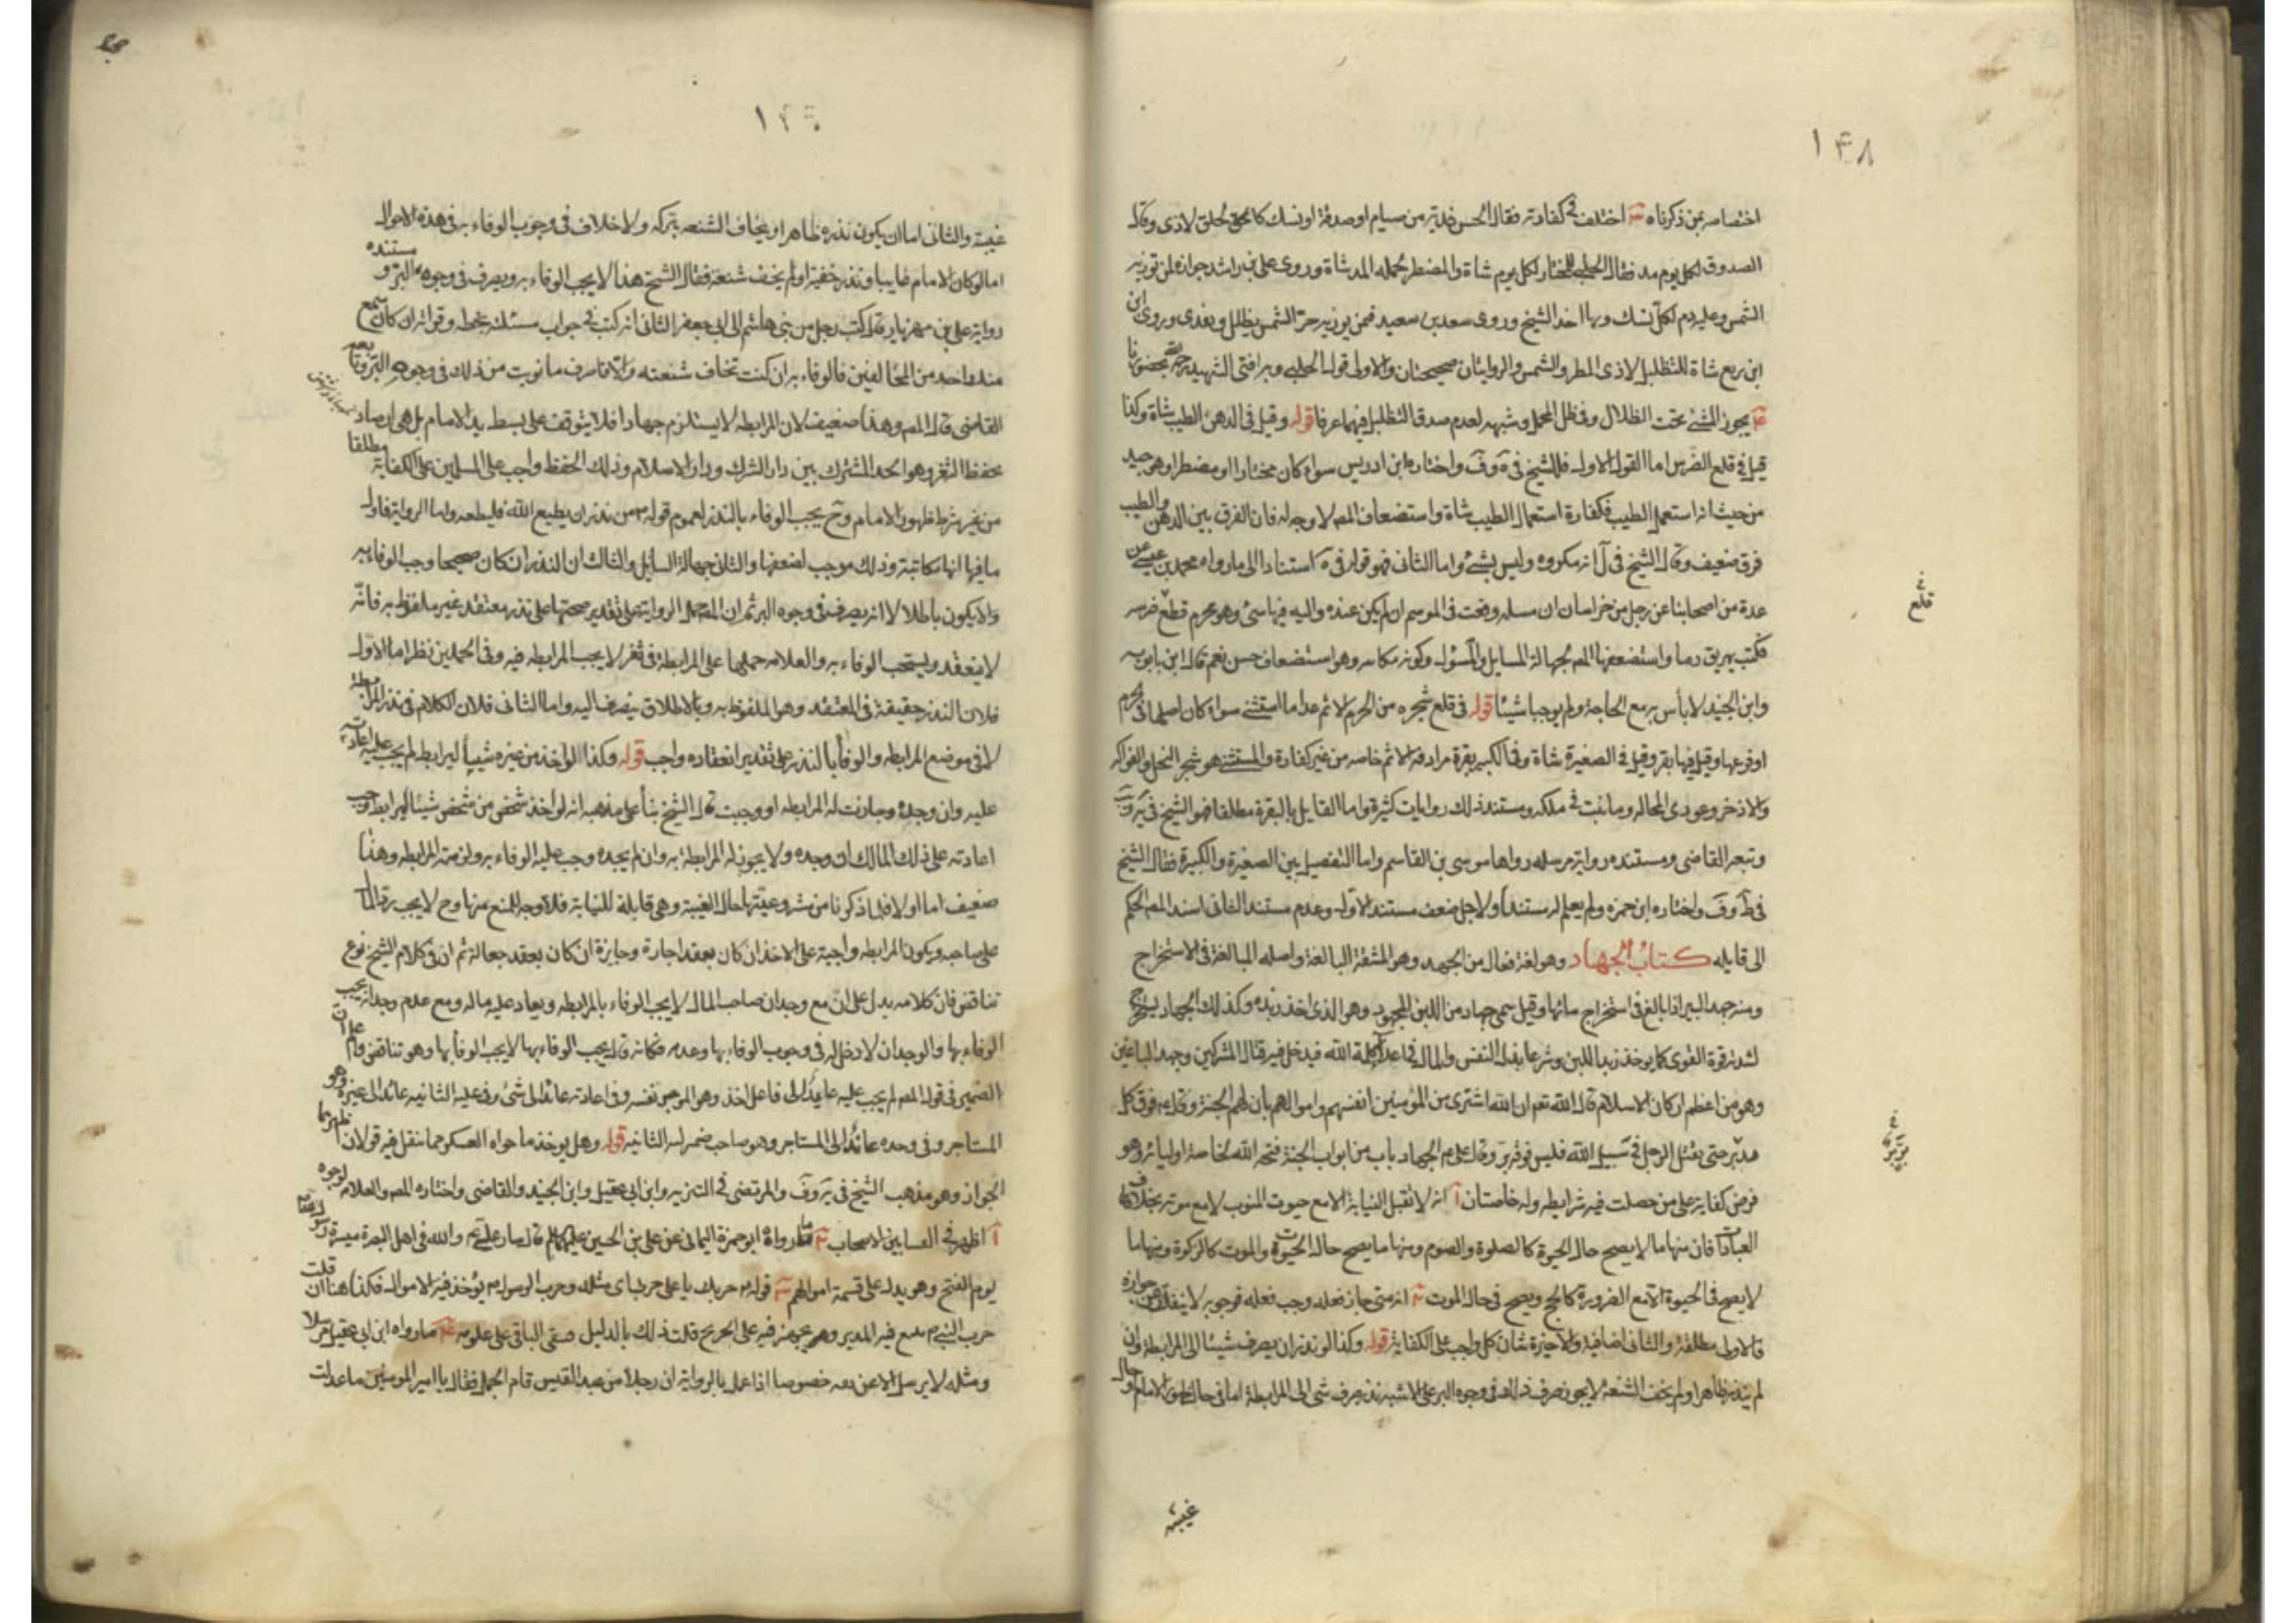 ١٤٨
اختصاصه بمن ذكرناه اختلف في كفارته فقال الحسن فدية من صيام او صدقة او نسك كالمحلق لاذى وقال
الصدوق لكل يوم مد فقال الحلبي للمختار لكل يوم شاة والمضطر لجملة المدة شاة وروى علي بن راشد جوازه لمن تؤذيه
الشمس وعليه دم لكل نسك وبها اخذ الشيخ وروى سعد بن سعيد فمن يوذيه حر الشمس يظلل ويفدى وروى ابن
ابن بزيع شاة للتظليل لاذى المطر والشمس والروايتان صحيحتان والاولى قول الحلبي وبه افتى الشهيد
يجوز المشي تحت الظلال وفي ظل المحمل وشبهه لعدم صدق التظليل فيهما عرفا قوله وقيل في الدهن الطيب شاة وكذا
قيل في قلع الضرس اما القول الاول فللشيخ في واختاره ابن ادريس سواء كان مختارا او مضطرا وهو جيد
من حيث انه استعمل الطيب فكفارة استعمال الطيب شاة واستضعاف المصـ لا وجه له فان الفرق بين الدهن والطيب
فرق ضعيف وقال الشيخ في انه مكروه وليس بشئ واما الثاني فهو قوله في استنادا الى ما رواه محمد بن عيسى عن
عدة من اصحابنا عن رجل من خراسان ان مسئلة وقعت في الموسم لم يكن عند مواليه فيها شئ وهو محرم قطع ضرسه
فكتب يهريق دما واستضعفها المصـ لجهالة السايل والمسؤل وكونه مكاتبه وهو استضعاف حسن نعم قال ابن بابويه
وابن الجنيد لا بأس به مع الحاجة ولم يوجبا شيئا قوله في قلع شجره من الحرم الاثم عدا ما استثنى سواء كان اصلها في الحرم
او فرعها وقيل فيها بقرة وقيل في الصغيرة شاة وفي الكبير بقرة مراده الاثم خاصه من غير كفارة والمستثنى هو شجر النخل والفواكه
والاذخر وعودى المحاله وما نبت في ملكه ومستند ذلك روايات كثيرة واما القايل بالبقرة مطلقا فهو الشيخ في
وتبعه القاضى ومستنده رواية مرسله رواها موسى بن القاسم واما التفصيل بين الصغيرة والكبيرة فقال الشيخ
في واختاره ابن حمزه ولم يعلم له مستندا ولاجل ضعف مستند الاول وعدم مستند الثاني اسند المصـ الحكم
الى قايله كتاب الجهاد وهو لغة فعال من الجهد وهو المشقة البالغة واصله المبالغة في الاستخراج
ومنه جهد البير اذا بالغ في استخراج مائها وقيل سمى جهاد من اللبن المجهود وهو الذى اخذ زبده وكذلك الجهاد يستخرج
لشدته قوة القوى كما يوخذ زبد اللبن وشرعا بذل النفس والمال في اعلاء كلمة الله فيدخل فيه قتال المشركين وجهد الباغين
وهو من اعظم اركان الاسلام قال الله تعم ان الله اشترى من المؤمنين انفسهم واموالهم بان لهم الجنة وقال فوق كل
حتى يقتل الرجل في سبيل الله فليس فوقه بر وقال علي الجهاد باب من ابواب الجنة فتحه الله لخاصة اوليائه وهو
فرض كفاية على من حصلت فيه شرايطه وله خاصتان آ انه لا تقبل النيابة الا مع حيوت المنوب لا مع موته بخلاف
العبادات فان منها ما لا يصح حال الحيوة كالصلوة والصوم ومنها ما يصح حاله الحيوة والموت كالزكوة ومنها ما
لا يصح في الحيوة الا مع الضرورة كالحج ويصح في حالة الموت انه متى جاز فعله وجب فعله فوجوبه لا ينفك عن جوازه
فالاول مطلقة والثاني اضافية والاخيرة شان كل واجب على الكفاية قوله وكذا لو نذر ان يصرف شيئا الى المرابطة وان
لم ينذره ظاهرا ولم يخف الشنعة لا يجوز صرف ذلك في وجوه البر على الاشبه نذر صرف شئ الى المرابطة اما في حال ظهور الامام او حال
قلع
غيبته
غيبته والثاني اما ان يكون نذره ظاهرا او يخاف الشنعه بتركه ولا خلاف في وجوب الوفاء به في هذه الاحوال
اما لو كان الامام غايبا ونذر خفية او لم يخف شنعة فقال الشيخ هذا لا يجب الوفاء به ويصرف في وجوه البر و مستنده
رواية علي بن مهزيار قال كتب رجل من بني هاشم الى ابي جعفر الثاني انه كتب في جواب مسئله بخطه وقراته ان كان سمع
منك واحد من المخالفين فالوفاء به ان كنت تخاف شنعته والا فاصرف ما نويت من ذلك في وجوه البر وتابعه
القاضى قال المصـ وهذا ضعيف لان المرابطه لا يستلزم جهادا فلا يتوقف على بسط يد الامام بل هي ارصاد
لحفظ الثغر وهو الحد المشترك بين دار الشرك ودار الاسلام وذلك الحفظ واجب على المسلمين على الكفاية مطلقا
من غير شرط ظهور الامام وح يجب الوفاء بالنذر لعموم قوله من نذر ان يطيع الله فليطعه واما الرواية فاول
ما فيها انها مكاتبة وذلك موجب لضعفها والثاني جهالة السايل والثالث ان النذر ان كان صحيحا وجب الوفاء به
والا يكون باطلا لا انه يصرف في وجوه البر ثم ان المصـ حمل الرواية على تقدير صحتها على نذر معتقد غير ملفوظ به فانه
لا ينعقد ويستحب الوفاء به والعلامه حملها على المرابطة في ثغر لا يجب المرابطه فيه وفي الحملين نظر اما الاول
فلان النذر حقيقة في المعتقد وهو الملفوظ به وبالاطلاق ينصرف اليه واما الثاني فلان الكلام في نذر المرابطة
لا في موضع المرابطه والوفا بالنذر على تقدير انعقاده واجب قوله وكذا لو اخذ من غيره شيئا ليرابط لم يجب عليه اعادته
عليه وان وجده وجازت له المرابطه او وجبت قال الشيخ بنأ على مذهبه انه لو اخذ شخص من شخص شيئا ليرابط وجب
اعادته على ذلك المالك ان وجده ولا يجوز له المرابطة به وان لم يجده وجب عليه الوفاء به ولزمته المرابطه وهذا
ضعيف اما اولا فلما ذكرنا من مشروعيتها حال الغيبة وهي قابلة للنيابة فلا وجه للمنع منها وح لا يجب رد المال
على صاحبه ويكون المرابطه واجبة على الاخذ ان كان بعقد اجارة وجايزة ان كان بعقد جعالة ثم ان في كلام الشيخ نوع
تناقض فان كلامه يدل على ان مع وجدان صاحب المال لا يجب الوفاء بالمرابطه ويعاد عليه ماله ومع عدم وجدانه يجب
الوفاء بها والوجدان لا دخل له في وجوب الوفاء بها وعدمه فكانه قال يجب الوفاء بها لا يجب الوفأ بها وهو تناقض واعلم ان
الضمير في قول المصـ لم يجب عليه عايد الى فاعل اخذ وهو الموجر نفسه وفي اعادته عائد الى شئ وفي عليه الثانيه عائد الى غيره وهو
المستاجر وفي وحده عائد الى المستاجر وهو صاحب ضمير الثانية قوله وهل يوخذ ما حواه العسكر مما ينقل فيه قولان اظهرهما
الجواز وهو مذهب الشيخ في والمرتضى في التنزيه وابن ابي عقيل وابن الجنيد والقاضى واختاره المصـ والعلامه لوجوه
آ اظهر في الفتوى بين الاصحاب ما رواه ابو حمزة اليماني عن علي بن الحسين قال سار علي والله في اهل البصرة سيرة رسول الله
يوم الفتح وهو يدل على قسمة اموالهم قوله حربك يا علي حربي اى مثله وحرب الرسول يؤخذ فيه الاموال فكذا هنا ان قلت
حرب النبي يتبع فيه المدبر ويجهز فيه على الجريح قلت ذلك بالدليل فبقى الباقي على عمومه ما رواه ابن ابي عقيل مرسلا
ومثله لا يرسل الا عن ثقه خصوصا اذا عمل بالرواية ان رجلا من عبد القيس قام يوم الجمل فقال يا امير المومنين ما عدلت